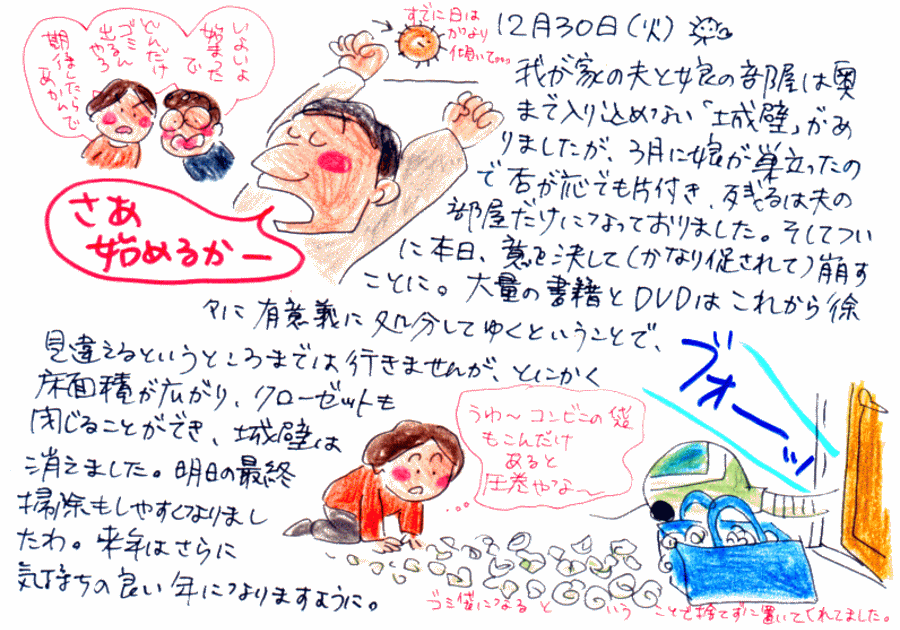 12月30日(火)
すでに日は
かなり
傾いて...
我が家の夫と娘の部屋は奥
まで入り込めない「城壁」があ
りましたが、3月に娘が巣立ったの
で否が応でも片付き、残るは夫の
部屋だけになっておりました。そしてつい
に本日、意を決して(かなり促されて)崩す
ことに。大量の書籍とDVDはこれから徐
々に有意義に処分してゆくということで、
見違えるというところまでは行きませんが、とにかく
床面積が広がり、クローゼットも
閉じることができ、城壁は
消えました。明日の最終
掃除もしやすくなりまし
たわ。来年はさらに
気持ちの良い年になりますように。
いよいよ
始まった
で
どんだけ
ゴミ
出るん
やろ
期待したらで
あかん
さあ
始めるかー
ブォーッ
うわ〜コンビニの袋
もこんだけ
あると
圧巻やな〜
ゴミ袋になるということで捨てずに置いてくれてました。